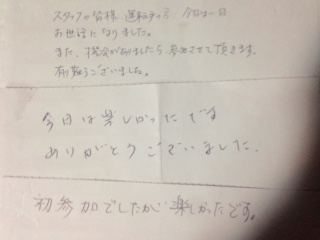 スタッフの皆様 運転手さん 今日は一日
お世話になりました。
また、機会がありましたら 参加させて頂きます。
有難うございました。
今日は楽しかったです
ありがとうございました.
初参加でしたが楽しかったです。